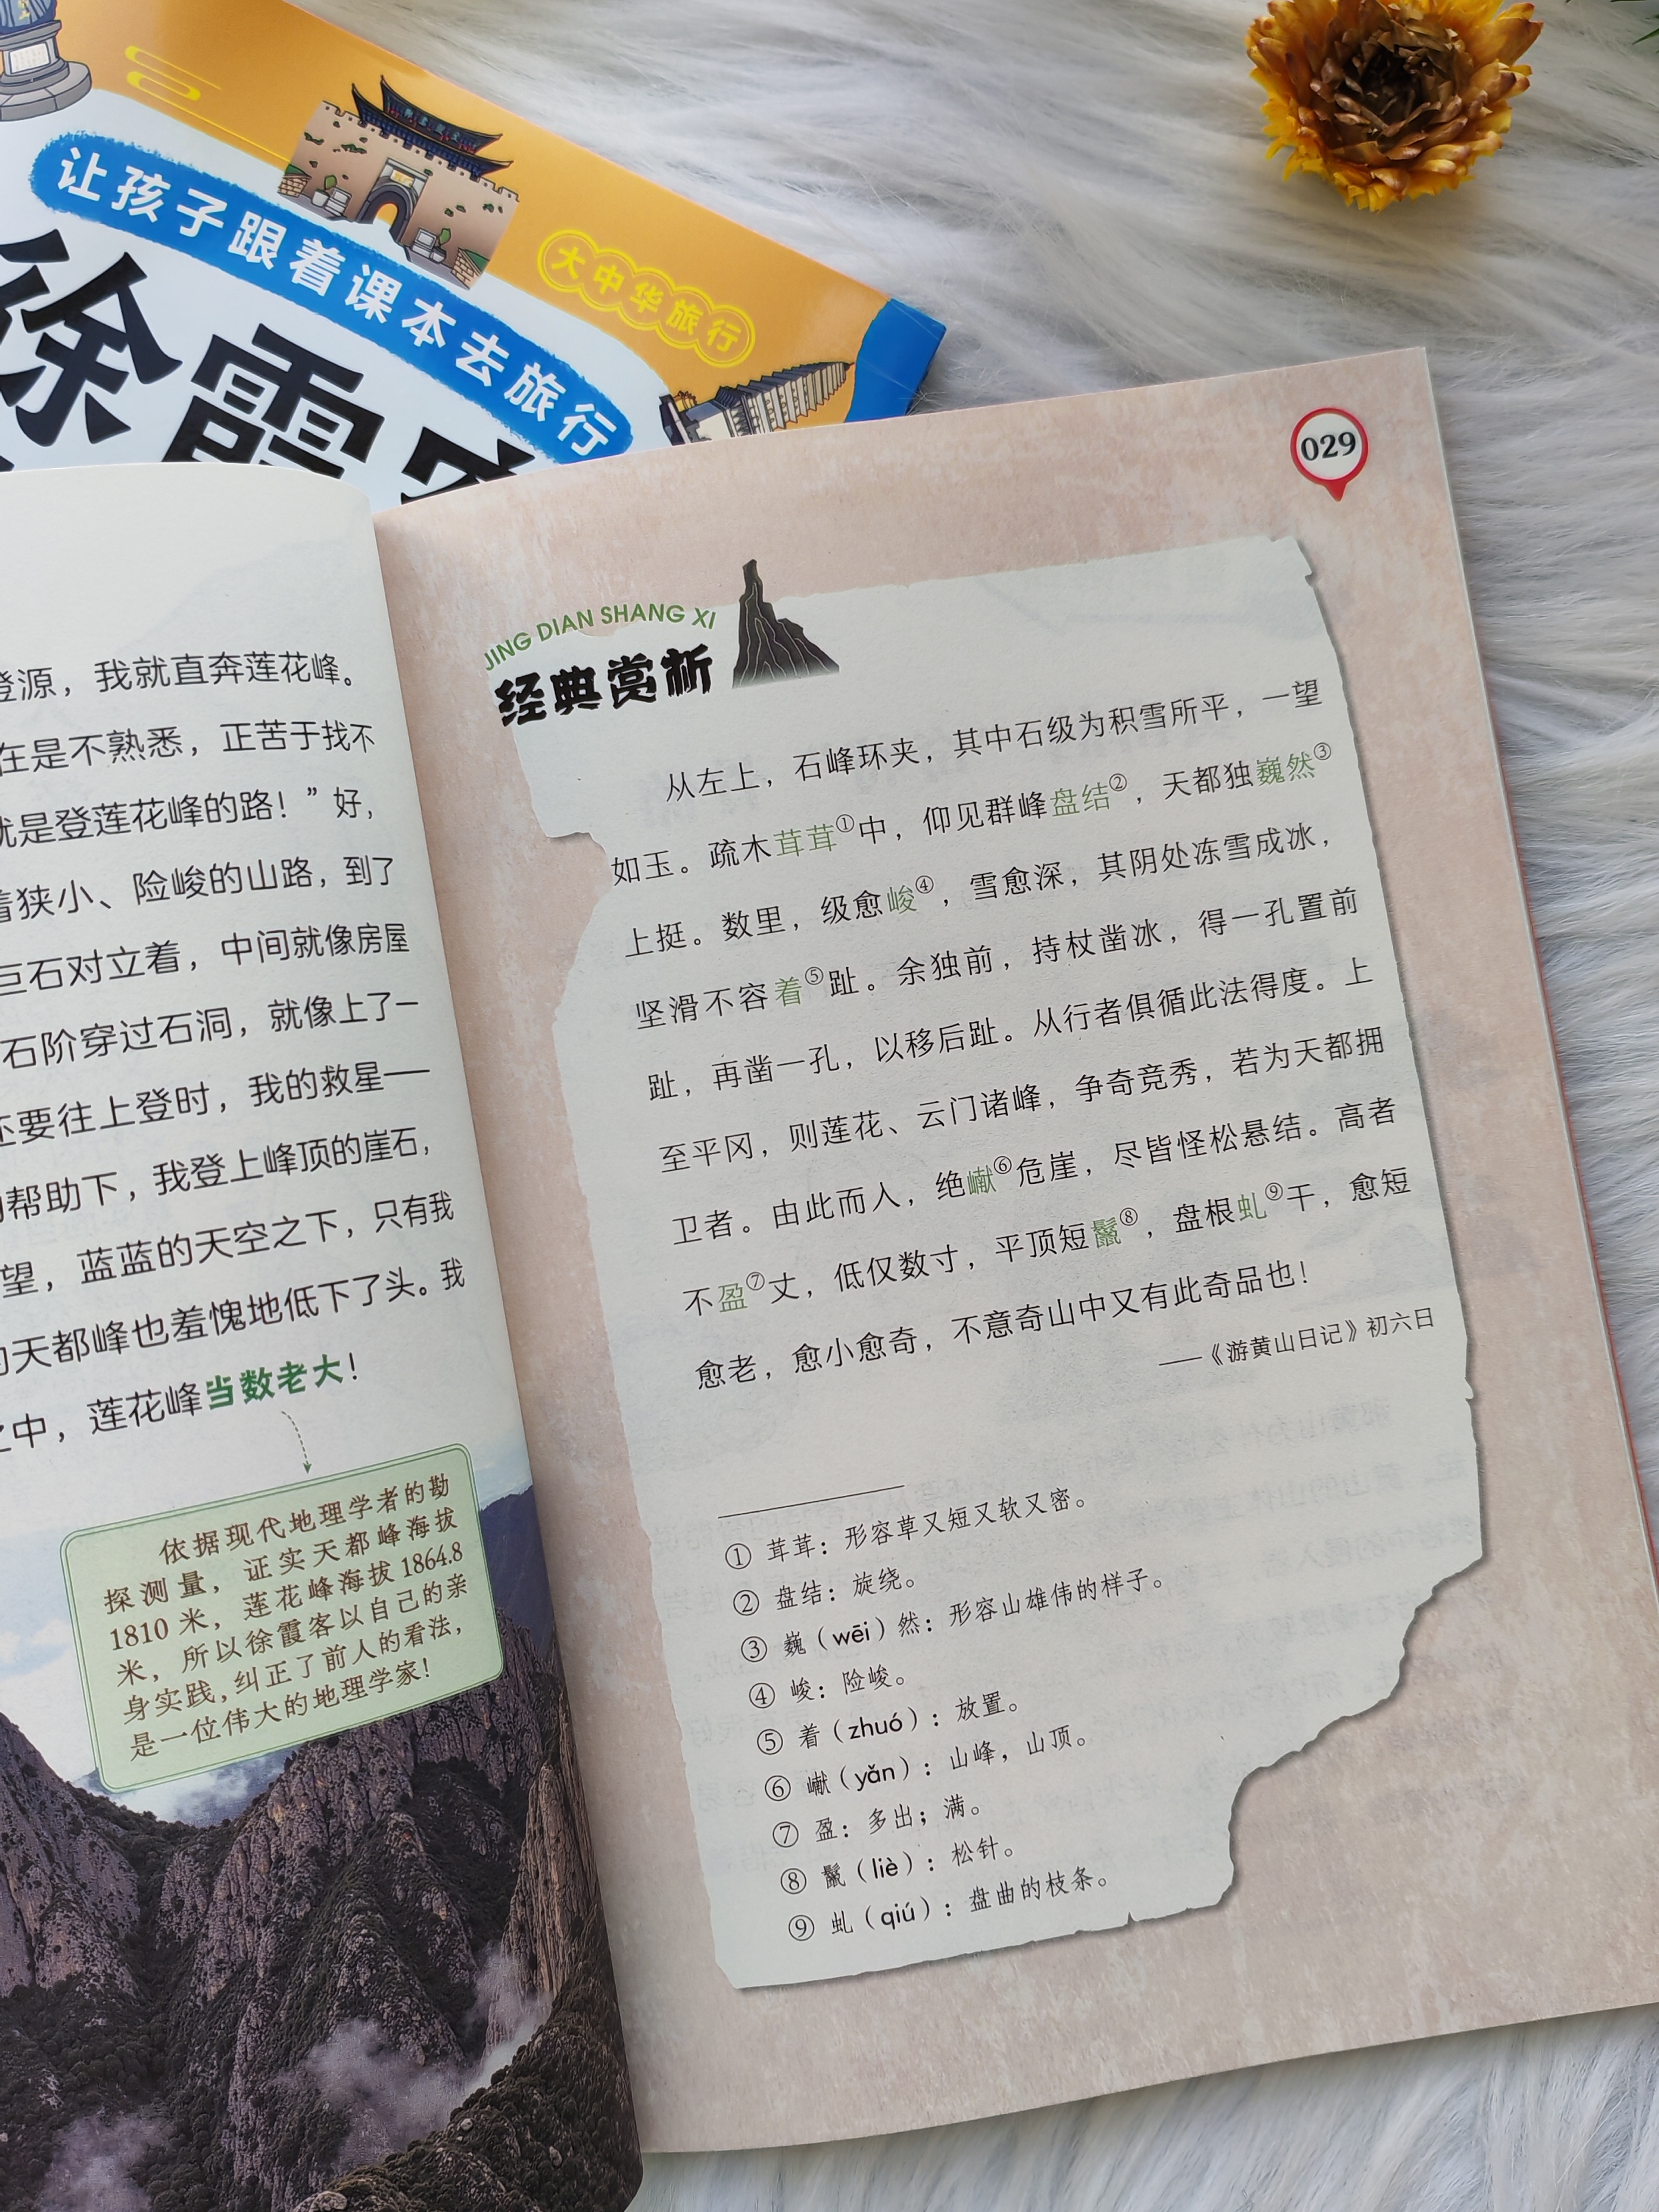 让孩子跟着课本去旅行
大中华旅行
徐霞客
登源，我就直奔莲花峰。
在是不熟悉，正苦于找不
就是登莲花峰的路！”好，
着狭小、险峻的山路，到了
巨石对立着，中间就像房屋
石阶穿过石洞，就像上了一
还要往上登时，我的救星——
的帮助下，我登上峰顶的崖石，
望，蓝蓝的天空之下，只有我
的天都峰也羞愧地低下了头。我
之中，莲花峰当数老大！
依据现代地理学者的勘
探测量，证实天都峰海拔
1810 米，莲花峰海拔 1864.8
米，所以徐霞客以自己的亲
身实践，纠正了前人的看法，
是一位伟大的地理学家！
029
JING DIAN SHANG XI
经典赏析
从左上，石峰环夹，其中石级为积雪所平，一望
如玉。疏木茸茸①中，仰见群峰盘结②，天都独巍然③
上挺。数里，级愈峻④，雪愈深，其阴处冻雪成冰，
坚滑不容着⑤趾。余独前，持杖凿冰，得一孔置前
趾，再凿一孔，以移后趾。从行者俱循此法得度。上
至平冈，则莲花、云门诸峰，争奇竞秀，若为天都拥
卫者。由此而入，绝巘⑥危崖，尽皆怪松悬结。高者
不盈⑦丈，低仅数寸，平顶短鬣⑧，盘根虬⑨干，愈短
愈老，愈小愈奇，不意奇山中又有此奇品也！
——《游黄山日记》初六日
① 茸茸：形容草又短又软又密。
② 盘结：旋绕。
③ 巍（wēi）然：形容山雄伟的样子。
④ 峻：险峻。
⑤ 着（zhuó）：放置。
⑥ 巘（yǎn）：山峰，山顶。
⑦ 盈：多出；满。
⑧ 鬣（liè）：松针。
⑨ 虬（qiú）：盘曲的枝条。